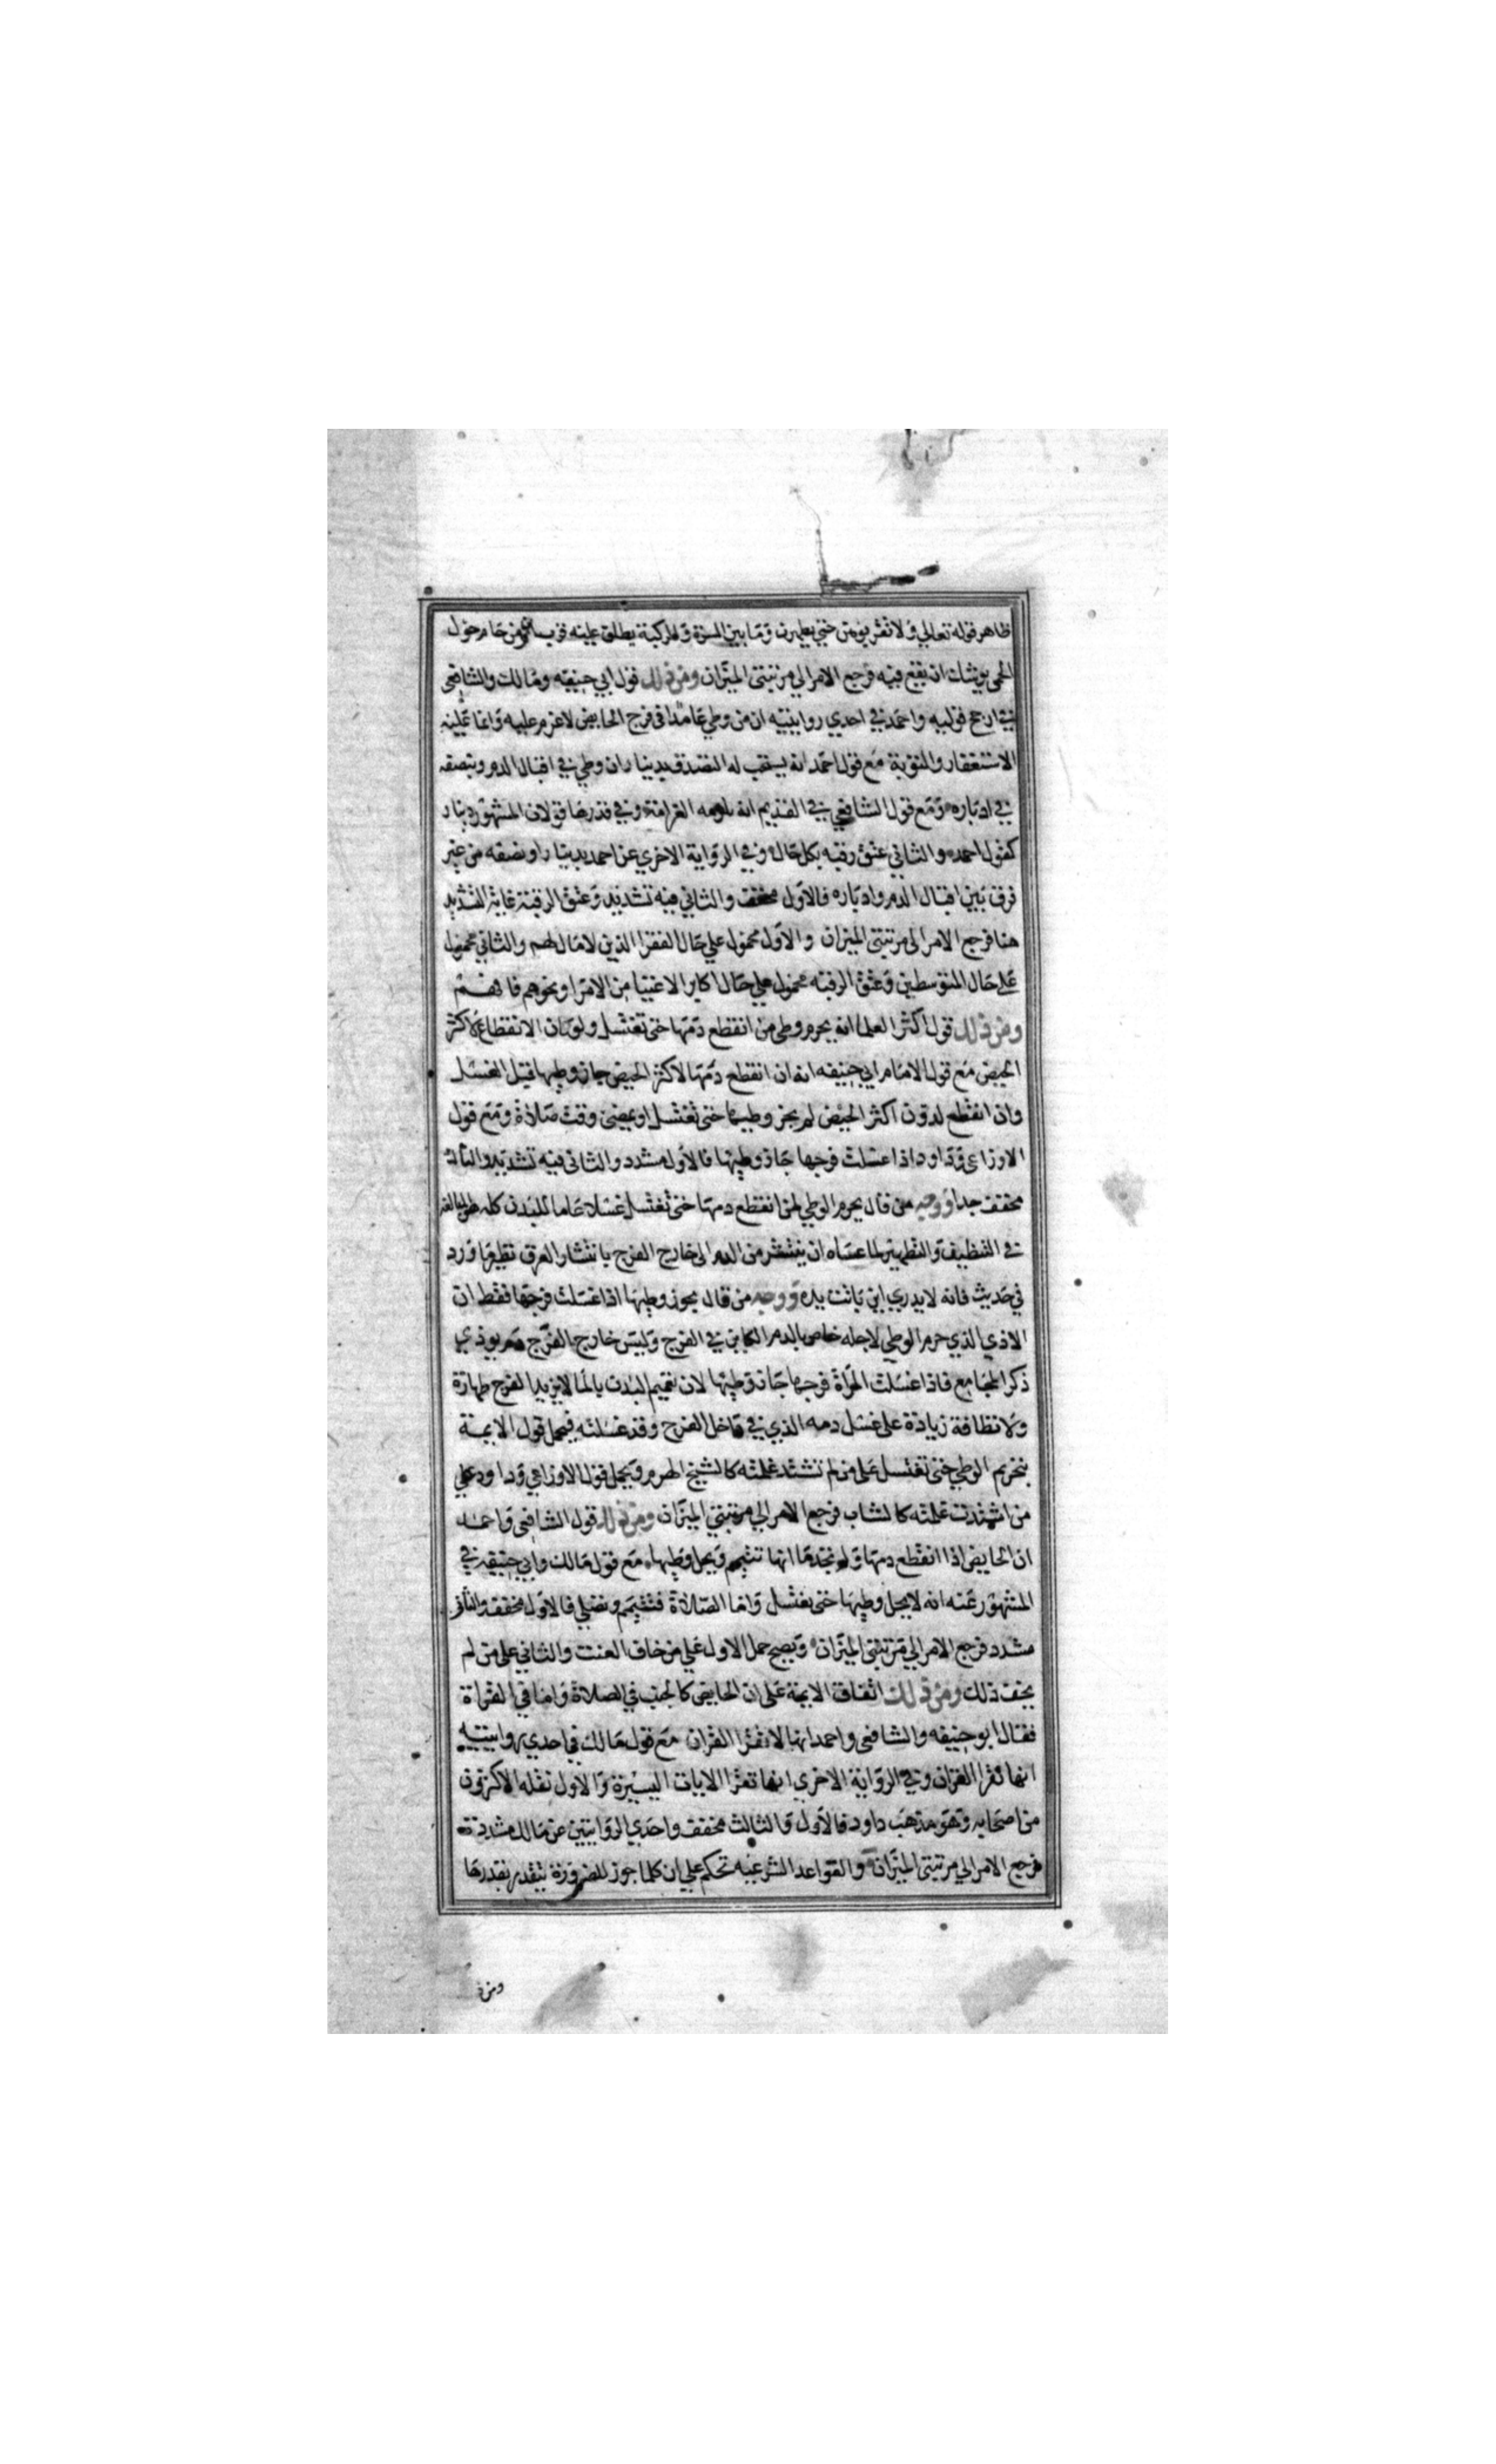 ظاهر قوله تعالي ولا تقربوهن حتي يطهرن وما بين السرة والركبة يطلق عليه قرب من حام حول
الحمى يوشك ان يقع فيه فرجع الامر الي مرتبتى الميزان ومن ذلك قول ابي حنيفه ومالك والشافعى
في ارجح قوليه واحمد في احدي روايتيه ان من وطي عامدا في فرج الحايض لا غرم عليه وانما عليه
الاستغفار والتوبة مع قول احمد انه يستحب له التصدق بدينار ان وطي في اقبال الدم وبنصفه
في ادباره ومع قول الشافعي في القديم انه يلزمه الغرامة وفي قدرها قولان المشهور دينار
كقول احمد والثاني عتق رقبه بكل حال وفي الرواية الاخري عن احمد بدينار او نصفه من غير
فرق بين اقبال الدم وادباره فالاول مخفف والثاني فيه تشديد وعتق الرقبة غاية التشديد
هنا فرجع الامر الى مرتبتى الميزان والاول محمول علي حال الفقرا الذين لا مال لهم والثاني محمول
على حال المتوسطين وعتق الرقبه محمول علي حال اكابر الاغنيا من الامرا ونحوهم فافهم
ومن ذلك قول اكثر العلما انه يحرم وطى من انقطع دمها حتى تغتسل ولو كان الانقطاع لاكثر
الحيض مع قول الامام ابي حنيفه انه ان انقطع دمها لاكثر الحيض جاز وطيها قبل الغسل
وان انقطع لدون اكثر الحيض لم يجز وطيها حتى تغتسل او يمضى وقت صلاة ومع قول
الاوزاعى وداود اذا غسلت فرجها جاز وطيها فالاول مشدد والثاني فيه تشديد والثالث
مخفف جدا ووجه من قال يحرم الوطي لمن انقطع دمها حتى تغتسل غسلا عاما للبدن كله
في التنظيف والتطهير لما عساه ان ينتشر من الدم الى خارج الفرج بانتشار العرق نظير ما ورد
في حديث فانه لا يدري اين باتت يده ووجه من قال يجوز وطيها اذا غسلت فرجها فقط ان
الاذي الذي حرم الوطي لاجله خاص بالدم الكاين في الفرج وليس خارج الفرج دم يوذي
ذكر المجامع فاذا غسلت المراة فرجها جاز وطيها لان تعميم البدن بالما لا يزيد الفرج طهارة
ولا نظافة زيادة على غسل دمه الذي في داخل الفرج وقد غسلته فيحمل قول الايمة
بتحريم الوطي حتى تغتسل على من لم تشتد غلمته كالشيخ الهرم ويحمل قول الاوزاعي وداود علي
من اشتدت غلمته كالشاب فرجع الامر الي مرتبتي الميزان ومن ذلك قول الشافعى واحمد
ان الحايض اذا انقطع دمها ولم تجد ما انها تتيمم ويحل وطيها مع قول مالك وابي حنيفه في
المشهور عنه انه لا يحل وطيها حتى تغتسل واما الصلاة فتتيمم وتصلي فالاول مخفف والثاني
مشدد فرجع الامر الي مرتبتى الميزان ويصح حمل الاول علي من خاف العنت والثاني على من لم
يخف ذلك ومن ذلك اتفاق الايمة على ان الحايض كالجنب في الصلاة واما في القراة
فقال ابو حنيفه والشافعى واحمد انها لا تقرا القران مع قول مالك في احدي روايتيه
انها تقرا القران وفي الرواية الاخري انها تقرا الايات اليسيرة والاول نقله الاكثرون
من اصحابه وهو مذهب داود فالاول والثالث مخفف واحدي الروايتين عن مالك مشددة
فرجع الامر الي مرتبتى الميزان والقواعد الشرعيه تحكم علي ان كلما جوز للضرورة يتقدر بقدرها
ومن ذ